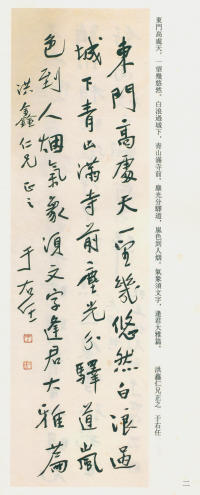 東門高處天、一望幾悠然、白浪過城下、青山滿寺前、塵光分驛道、嵐色到人烟、氣象須文字、逢君大雅篇。
洪鑫仁兄正之　于右任
東門高處天一望幾悠然白浪過
城下青山滿寺前塵光分驛道嵐
色到人烟氣象須文字逢君大雅篇
洪鑫仁兄正之
于右任
二